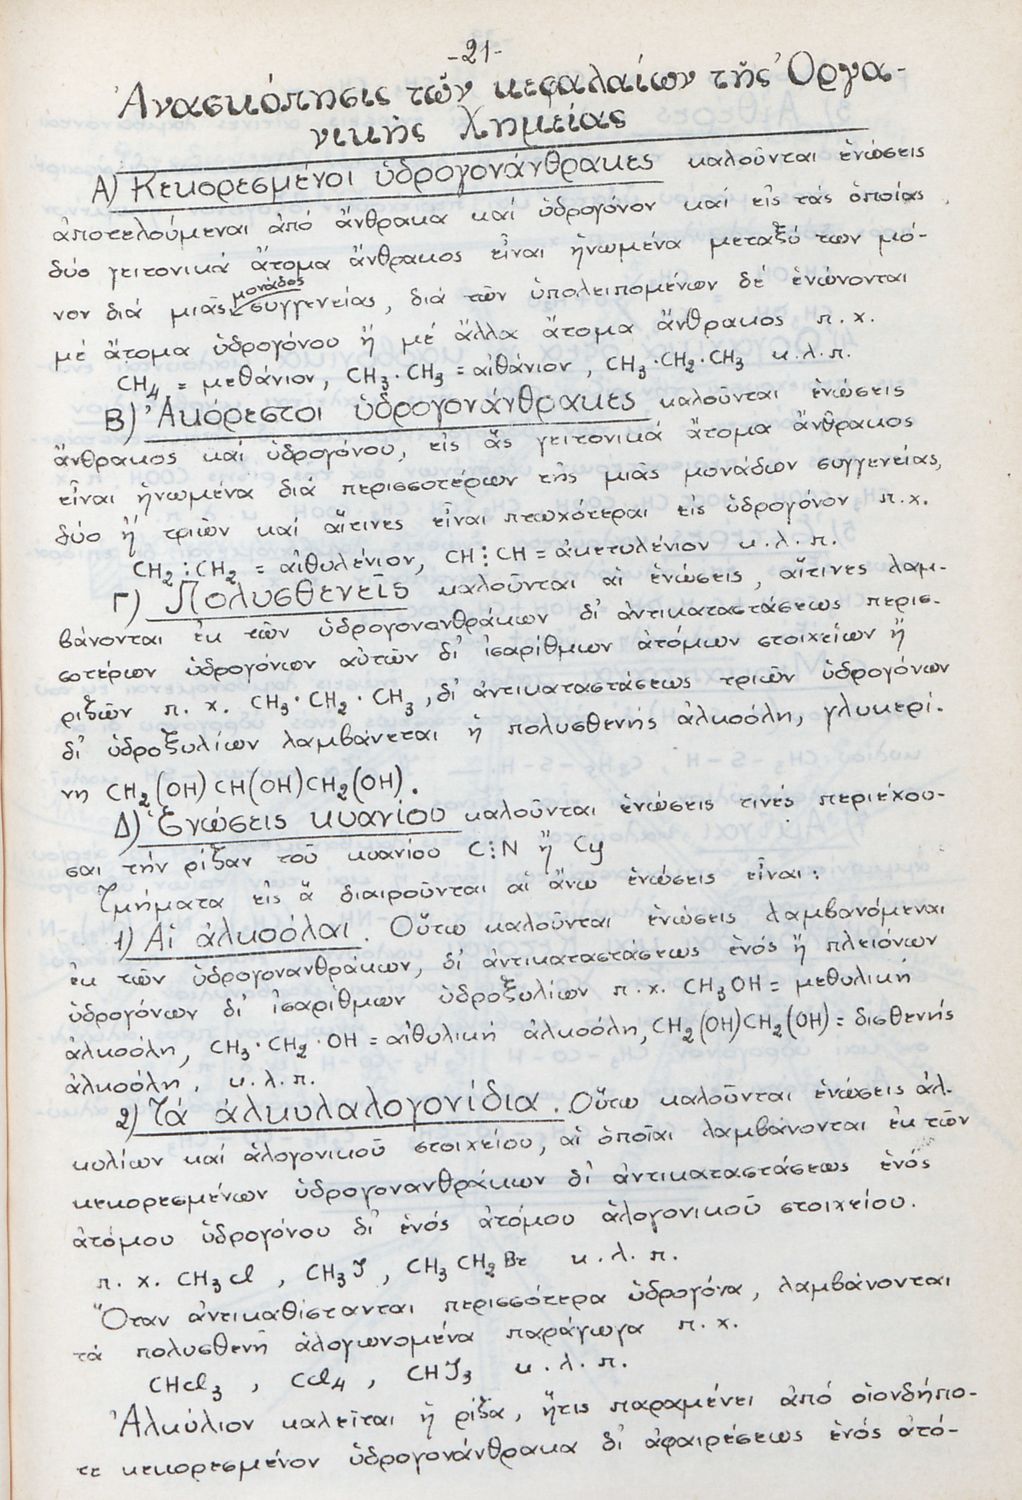 -21-
Ἀνασκόπησις τῶν κεφαλαίων τῆς Ὀργα-
νικῆς Χημείας
Α) Κεκορεσμένοι ὑδρογονάνθρακες καλοῦνται ἑνώσεις
ἀποτελούμεναι ἀπό ἄνθρακα καί ὑδρογόνον καί εἰς τάς ὁποίας
δύο γειτονικά ἄτομα ἄνθρακος εἶναι ἡνωμένα μεταξύ των μό-
νον διά μιᾶς μονάδος συγγενείας, διά τῶν ὑπολειπομένων δέ ἑνώνονται
μέ ἄτομα ὑδρογόνου ἤ μέ ἄλλα ἄτομα ἄνθρακος π.χ.
CH4 = μεθάνιον, CH3·CH3 = αἰθάνιον, CH3·CH2·CH3 κ.λ.π.
Β) Ἀκόρεστοι ὑδρογονάνθρακες καλοῦνται ἑνώσεις
ἄνθρακος καί ὑδρογόνου, εἰς ἅς γειτονικά ἄτομα ἄνθρακος
εἶναι ἡνωμένα διά περισσοτέρων τῆς μιᾶς μονάδων συγγενείας,
δύο ἤ τριῶν καί αἵτινες εἶναι πτωχότεραι εἰς ὑδρογόνον π.χ.
CH2:CH2 = αἰθυλένιον, CH⋮CH = ἀκετυλένιον κ.λ.π.
Γ) Πολυσθενεῖς καλοῦνται αἱ ἑνώσεις, αἵτινες λαμ-
βάνονται ἐκ τῶν ὑδρογονανθράκων δι' ἀντικαταστάσεως περισ-
σοτέρων ὑδρογόνων αὐτῶν δι' ἰσαρίθμων ἀτόμων στοιχείων ἤ
ριζῶν π.χ. CH3·CH2·CH3, δι' ἀντικαταστάσεως τριῶν ὑδρογόνων
δι' ὑδροξυλίων λαμβάνεται ἡ πολυσθενής ἀλκοόλη, γλυκερί-
νη CH2(OH)CH(OH)CH2(OH).
Δ) Ἑνώσεις κυανίου καλοῦνται ἑνώσεις τινές περιέχου-
σαι τήν ρίζαν τοῦ κυανίου C⋮N ἤ Cy
Τμήματα εἰς ἅ διαιροῦνται αἱ ἄνω ἑνώσεις εἶναι:
1) Αἱ ἀλκοόλαι. Οὕτω καλοῦνται ἑνώσεις λαμβανόμεναι
ἐκ τῶν ὑδρογονανθράκων, δι' ἀντικαταστάσεως ἑνός ἤ πλειόνων
ὑδρογόνων δι' ἰσαρίθμων ὑδροξυλίων π.χ. CH3OH = μεθυλική
ἀλκοόλη, CH3·CH2·OH = αἰθυλική ἀλκοόλη, CH2(OH)CH2(OH) = δισθενής
ἀλκοόλη. κ.λ.π.
2) Τά ἀλκυλαλογονίδια. Οὕτω καλοῦνται ἑνώσεις ἀλ-
κυλίων καί ἀλογονικοῦ στοιχείου, αἱ ὁποῖαι λαμβάνονται ἐκ τῶν
κεκορεσμένων ὑδρογονανθράκων δι' ἀντικαταστάσεως ἑνός
ἀτόμου ὑδρογόνου δι' ἑνός ἀτόμου ἀλογονικοῦ στοιχείου.
π.χ. CH3Cl, CH3J, CH3CH2Br κ.λ.π.
Ὅταν ἀντικαθίστανται περισσότερα ὑδρογόνα, λαμβάνονται
τά πολυσθενῆ ἀλογωνομένα παράγωγα π.χ.
CHCl3, CCl4, CHJ3 κ.λ.π.
Ἀλκύλιον καλεῖται ἡ ρίζα, ἥτις παραμένει ἀπό οἱονδήπο-
τε κεκορεσμένον ὑδρογονάνθρακα δι' ἀφαιρέσεως ἑνός ἀτό-